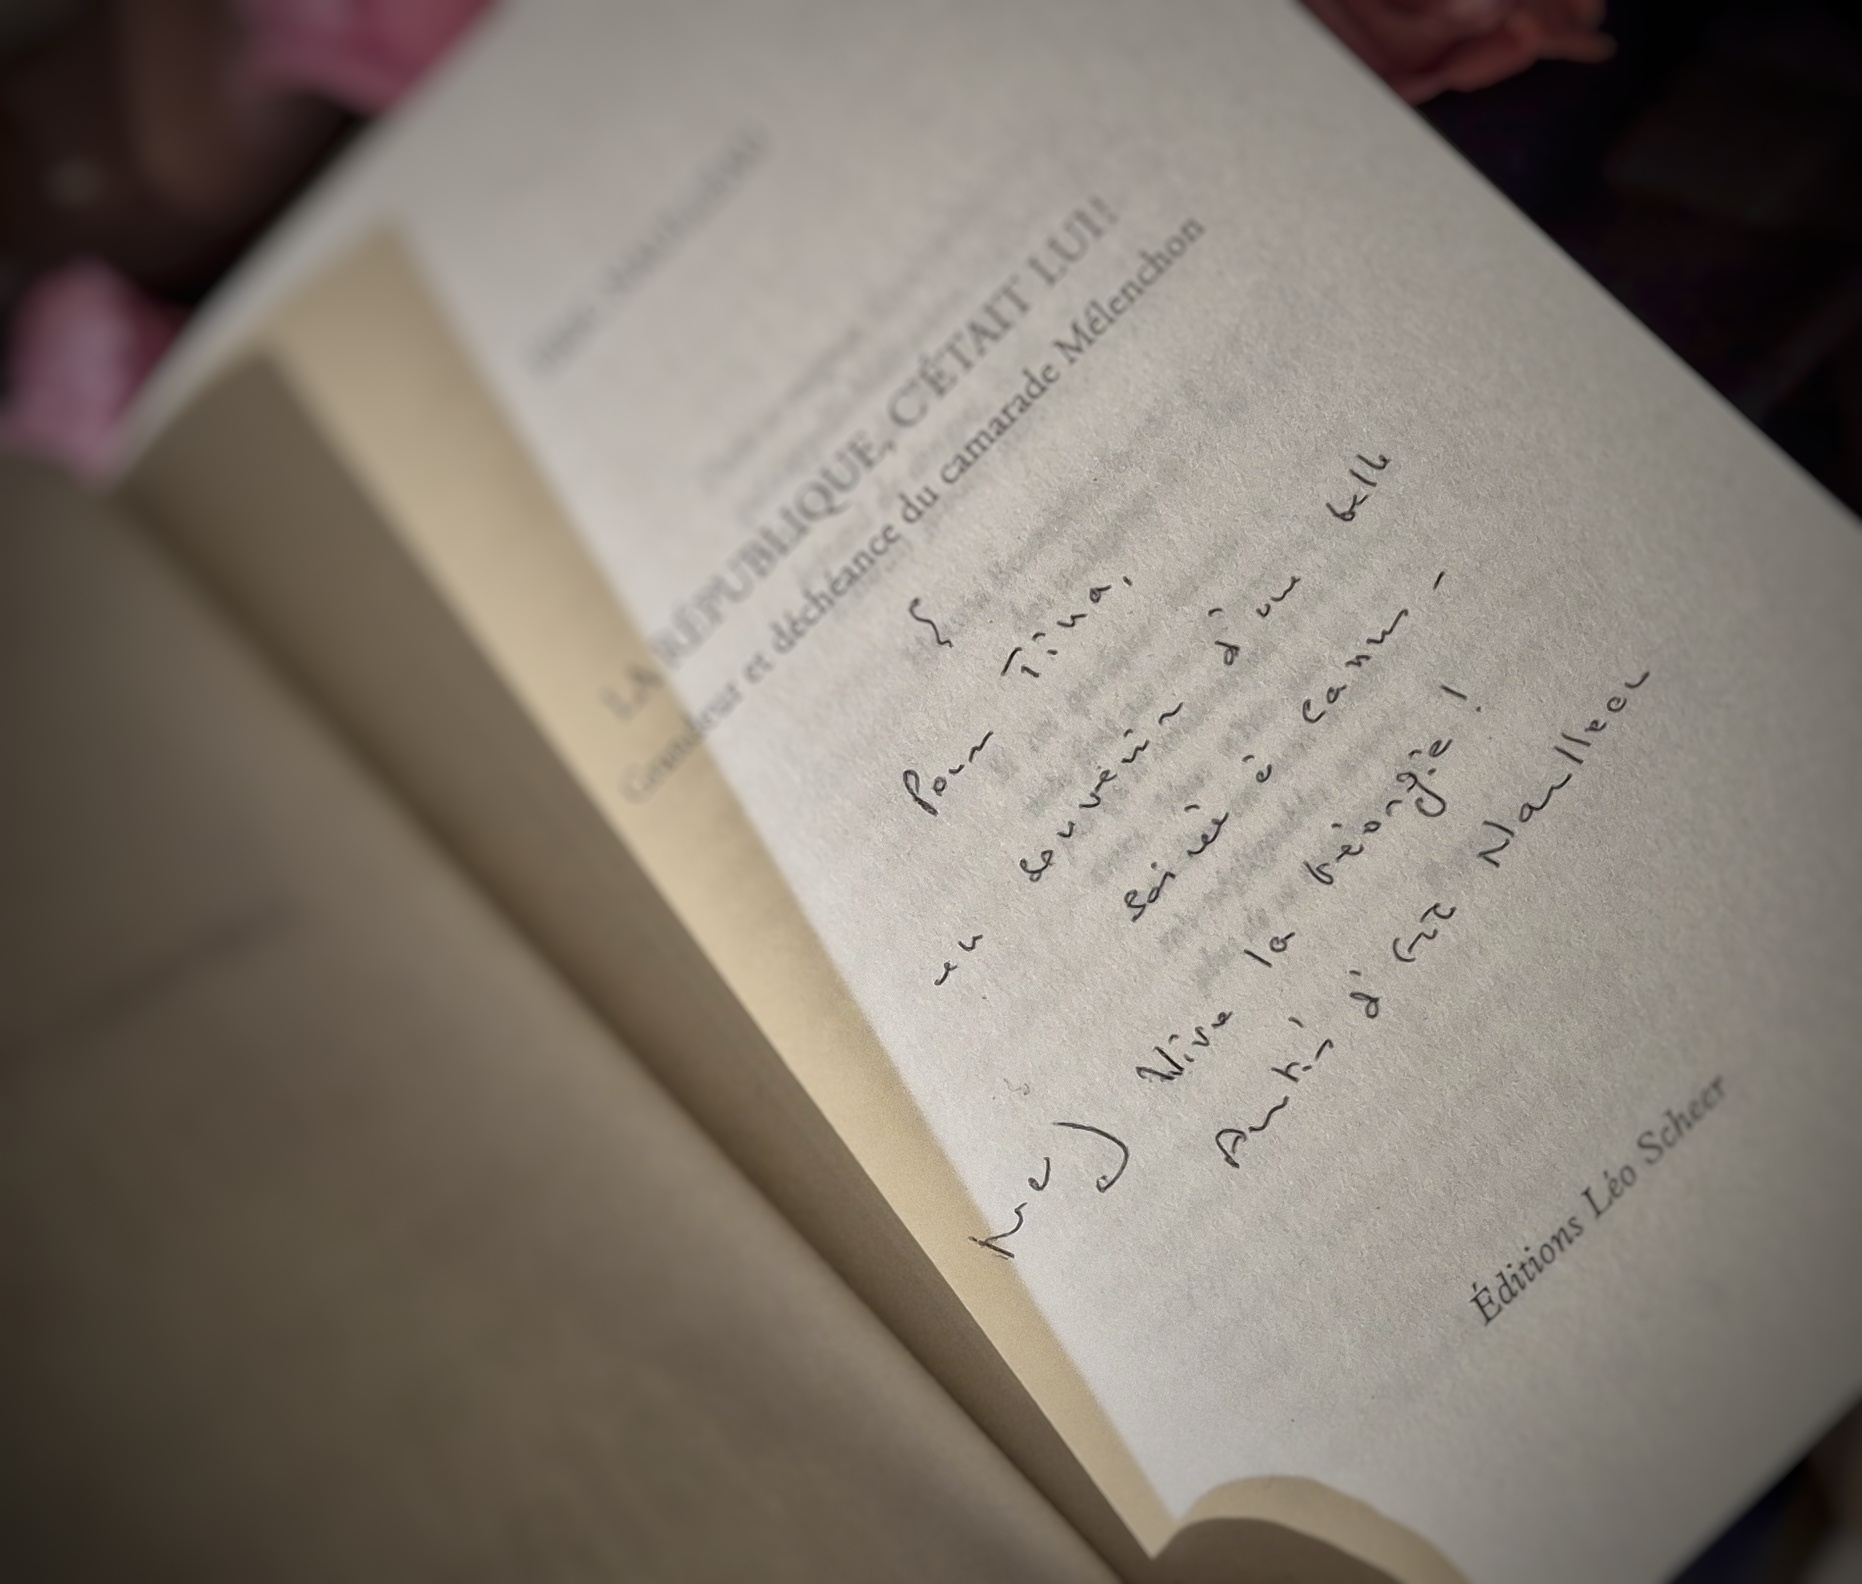 LA RÉPUBLIQUE, C'ÉTAIT LUI!
Grandeur et déchéance du camarade Mélenchon
Pour Tina,
en souvenir d'une belle
soirée à Cannes -
Vive la Géorgie!
Amitiés d'Eric Naulleau
Éditions Léo Scheer